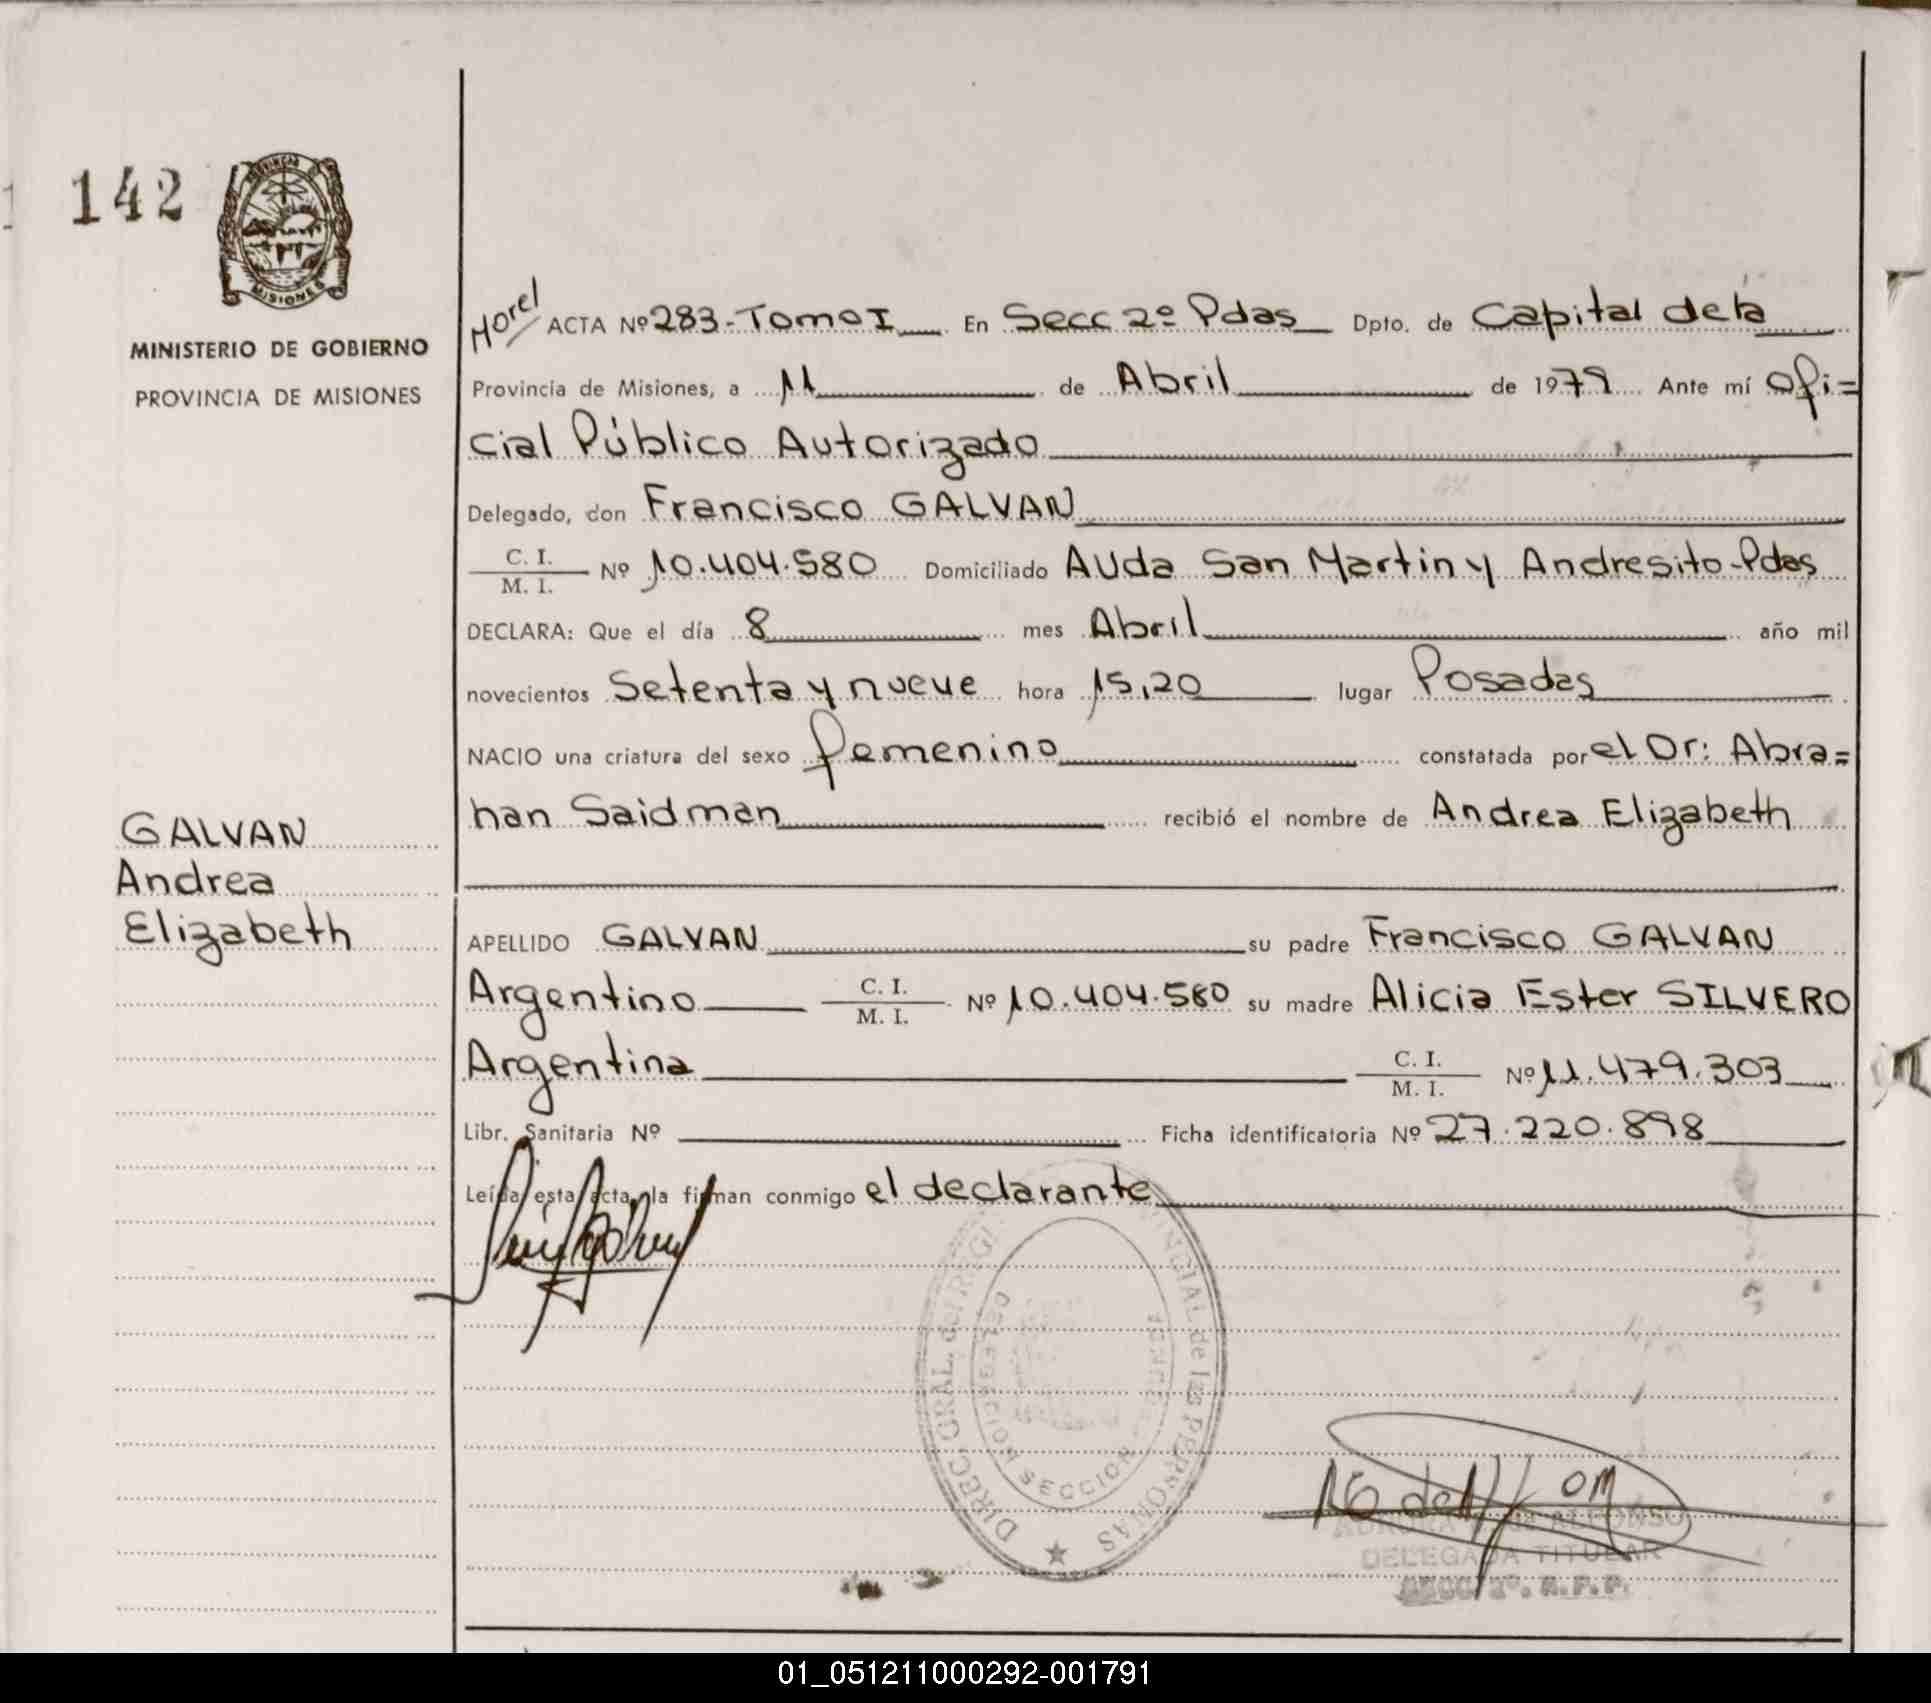 142
PROVINCIA
MISIONES
MINISTERIO DE GOBIERNO
PROVINCIA DE MISIONES
GALVAN
Andrea
Elizabeth
ACTA Nº 283-Tomo I En Secc 2º Pdas Dpto. de Capital de la
Provincia de Misiones, a 11 de Abril de 1979 Ante mí Ofi=
cial Público Autorizado
Delegado, don Francisco GALVAN
C. I.
M. I. Nº 10.404.580 Domiciliado AVda San Martin y Andresito-Pdas
DECLARA: Que el día 8 mes Abril año mil
novecientos Setenta y nueve hora 15,20 lugar Posadas
NACIO una criatura del sexo femenino constatada por el Dr: Abra=
han Saidman recibió el nombre de Andrea Elizabeth
APELLIDO GALVAN su padre Francisco GALVAN
Argentino C. I.
M. I. Nº 10.404.580 su madre Alicia Ester SILVERO
Argentina C. I.
M. I. Nº 11.479.303
Libr. Sanitaria Nº Ficha identificatoria Nº 27.220.898
Leída esta acta, la firman conmigo el declarante
DIREC. GRAL. del REGI NCIAL de las PERSONAS
SECCION
ALFONSO
DELEGADA TITULAR
SECC. 2º. R.P.P.
01_051211000292-001791